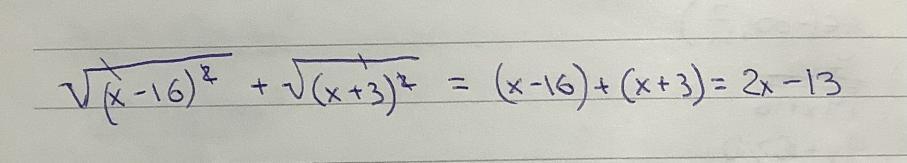 √(x-16)² + √(x+3)² = (x-16)+(x+3)= 2x-13